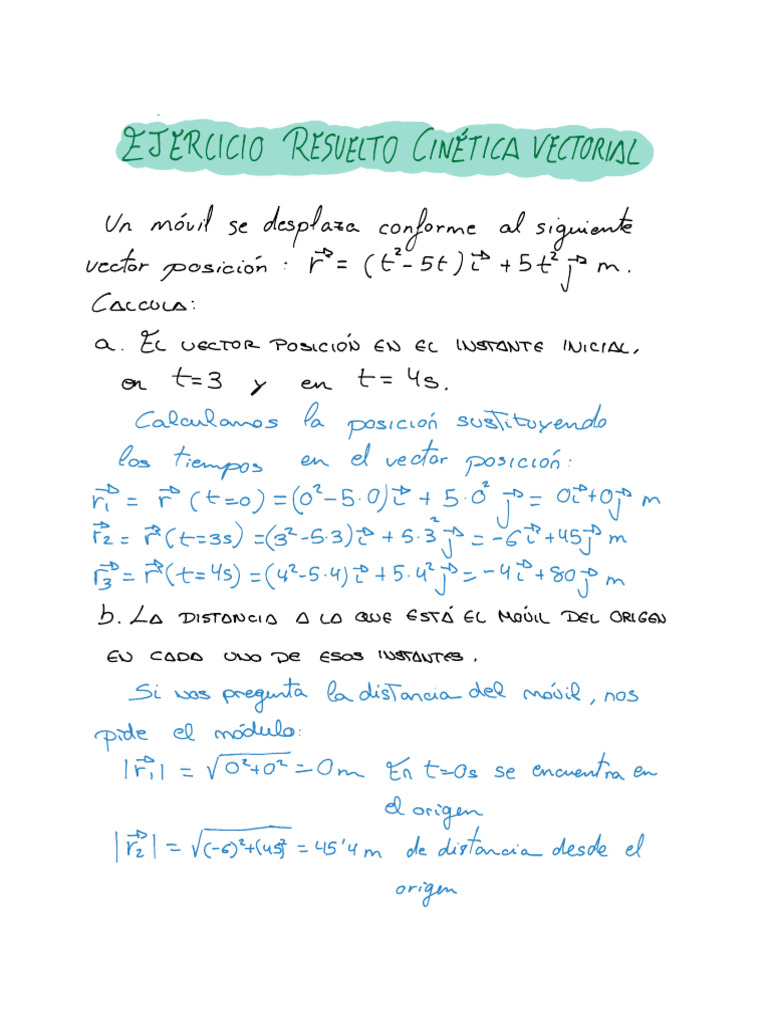 EJERCICIO RESUELTO CINÉTICA VECTORIAL
Un móvil se desplaza conforme al siguiente
vector posición: r⃗ = (t²-5t)i⃗ + 5t² j⃗ m.
CALCULA:
a. EL VECTOR POSICIÓN EN EL INSTANTE INICIAL,
en t=3 y en t= 4s.
Calculamos la posición sustituyendo
los tiempos en el vector posición:
r⃗₁ = r⃗ (t=0) = (0²-5·0)i⃗ + 5·0² j⃗ = 0i⃗+0j⃗ m
r⃗₂ = r⃗(t=3s) = (3²-5·3)i⃗ + 5·3² j⃗ = -6i⃗+45j⃗ m
r⃗₃ = r⃗(t=4s) = (4²-5·4)i⃗ + 5·4² j⃗ = -4i⃗+80j⃗ m
b. LA DISTANCIA A LA QUE ESTÁ EL MÓVIL DEL ORIGEN
EN CADA UNO DE ESOS INSTANTES.
Si nos pregunta la distancia del móvil, nos
pide el módulo:
|r⃗₁| = √0²+0² = 0m En t=0s se encuentra en
el origen
|r⃗₂| = √(-6)²+(45)² = 45'4 m de distancia desde el
origen